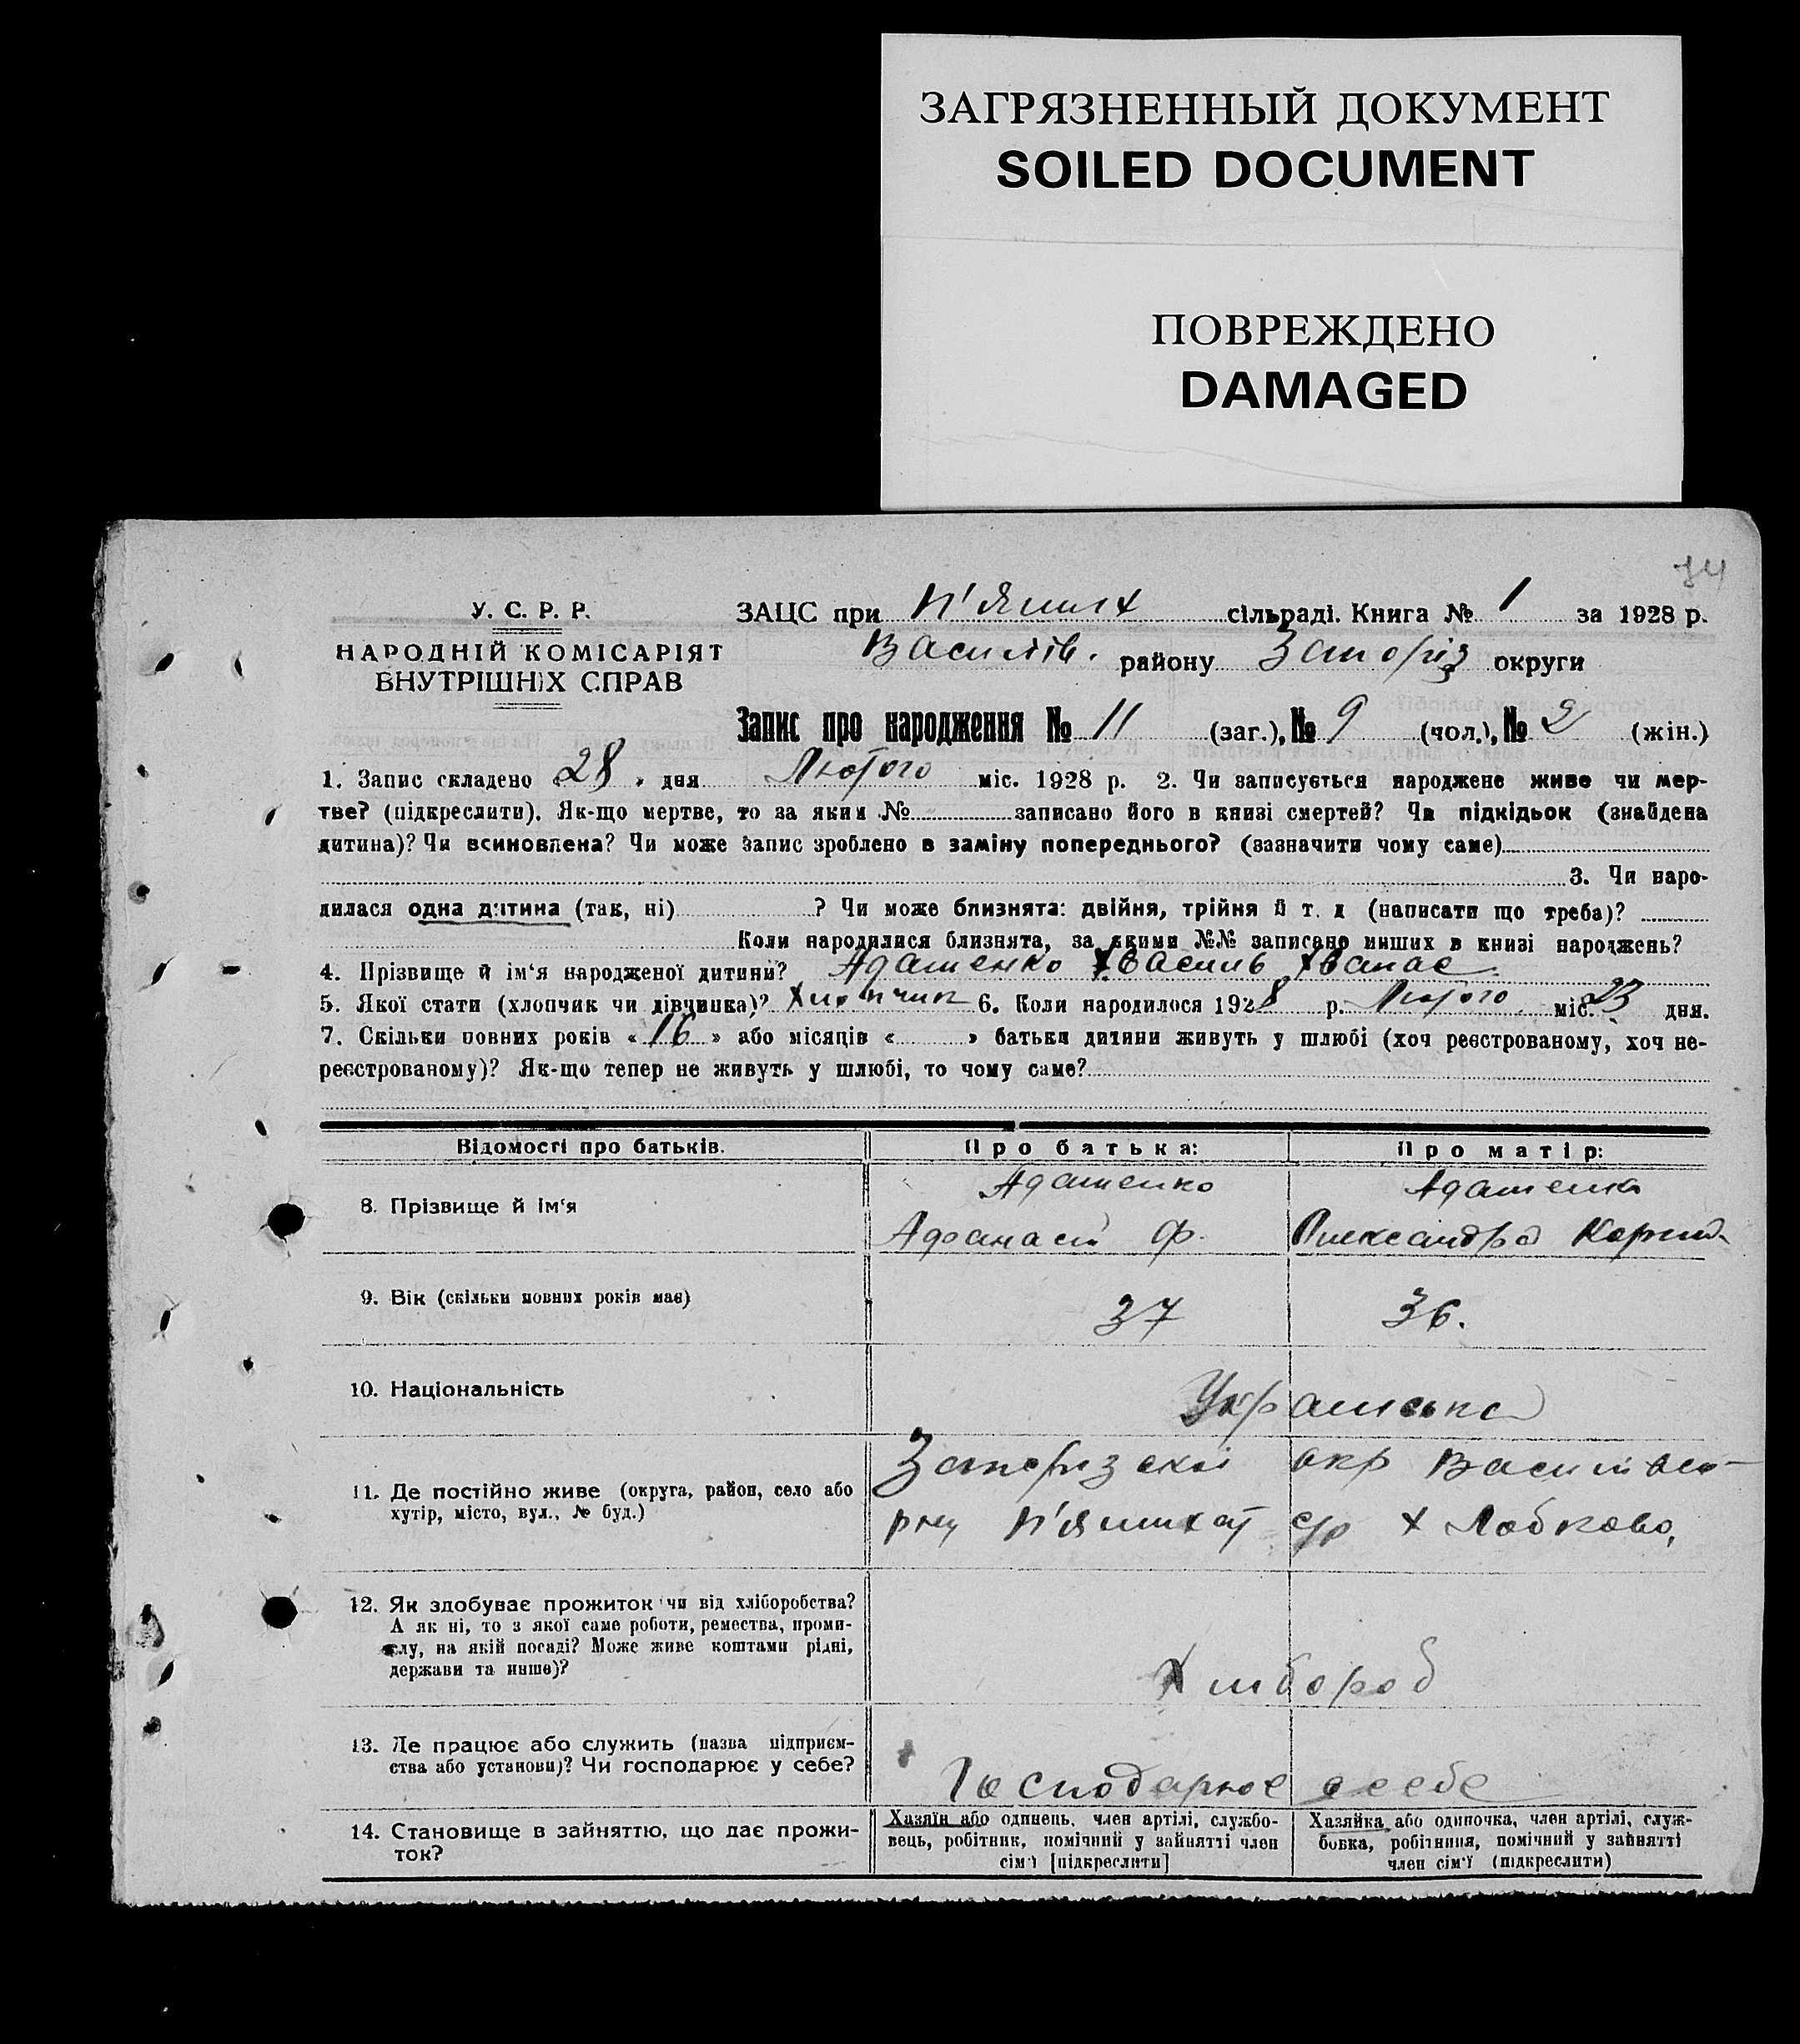 ЗАГРЯЗНЕННЫЙ ДОКУМЕНТ
SOILED DOCUMENT
ПОВРЕЖДЕНО
DAMAGED
У. С. Р. Р.
НАРОДНІЙ КОМІСАРІЯТ
ВНУТРІШНІХ СПРАВ
ЗАЦС при П'ятих сільраді. Книга № 1 за 1928 р.
Василів. району Запоріз округи
Запис про народження № 11 (заг.), № 9 (чол.), № 2 (жін.)
1. Запис складено «28» дня Лютого міс. 1928 р. 2. Чи записується народжене живе чи мер-
тве? (підкреслити). Як-що мертве, то за яким № записано його в книзі смертей? Чи підкідьок (знайдена
дитина)? Чи всиновлена? Чи може запис зроблено в заміну попереднього? (зазначити чому саме)
3. Чи наро-
дилася одна дитина (так, ні) ? Чи може близнята: двійня, трійня й т. д (написати що треба)?
Коли народилися близнята, за якими №№ записано инших в книзі народжень?
4. Прізвище й ім‘я народженої дитини? Адаменко Василь Хванас
5. Якої стати (хлопчик чи дівчинка)? Хлопчик 6. Коли народилося 1928 р. Лютого міс. 23 дня.
7. Скільки повних років «16» або місяців « » батьки дитини живуть у шлюбі (хоч реєстрованому, хоч не-
реєстрованому)? Як-що тепер не живуть у шлюбі, то чому саме?
Відомості про батьків. Про батька: Про матір:
8. Прізвище й ім‘я
Адаменко
Афанасій Ф.
Адаменко
Олександра Корній.
9. Вік (скільки повних років має) 37 36.
10. Національність Українська
11. Де постійно живе (округа, район, село або
хутір, місто, вул., № буд.)
Запорізскої окр Василівсь-
рну П'ятихат с/р х Лобково,
12. Як здобуває прожиток чи від хліборобства?
А як ні, то з якої саме роботи, ремества, проми-
слу, на якій посаді? Може живе коштами рідні,
держави та инше)?
Хлібороб
13. Де працює або служить (назва підприєм-
ства або установи)? Чи господарює у себе?
Господарює в себе
14. Становище в зайняттю, що дає прожи-
ток?
Хазяїн або одинець, член артілі, службо-
вець, робітник, помічний у зайнятті член
сім‘ї [підкреслити]
Хазяйка або одиночка, член артілі, служ-
бовка, робітниця, помічний у зайнятті
член сім‘ї (підкреслити)